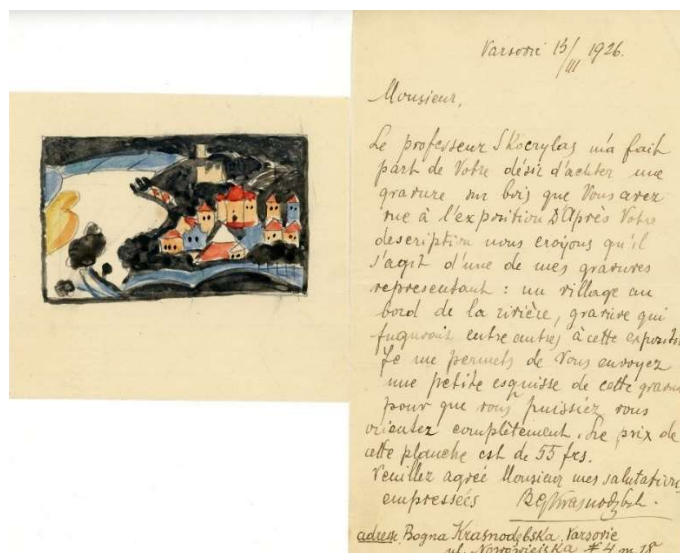 Varsovie 15/III 1926.
Monsieur,
Le professeur Skoczylas m'a fait
part de Votre désir d'acheter une
gravure sur bois que Vous avez
vue à l'exposition D'Après Votre
description nous croyons qu'il
s'agit d'une de mes gravures
representant : un village au
bord de la rivière, gravure qui
figurait entre autres à cette
Je me permets de Vous envoyez
une petite esquisse de cette
pour que vous puissiez vous
orientez complètement. Le prix de
cette planche est de 55 frs.
Veuillez agréé Monsieur mes salutations
empressées B Krasnodębska.
adresse Bogna Krasnodębska, Varsovie
ul. Nowowiejska # 4 m 18